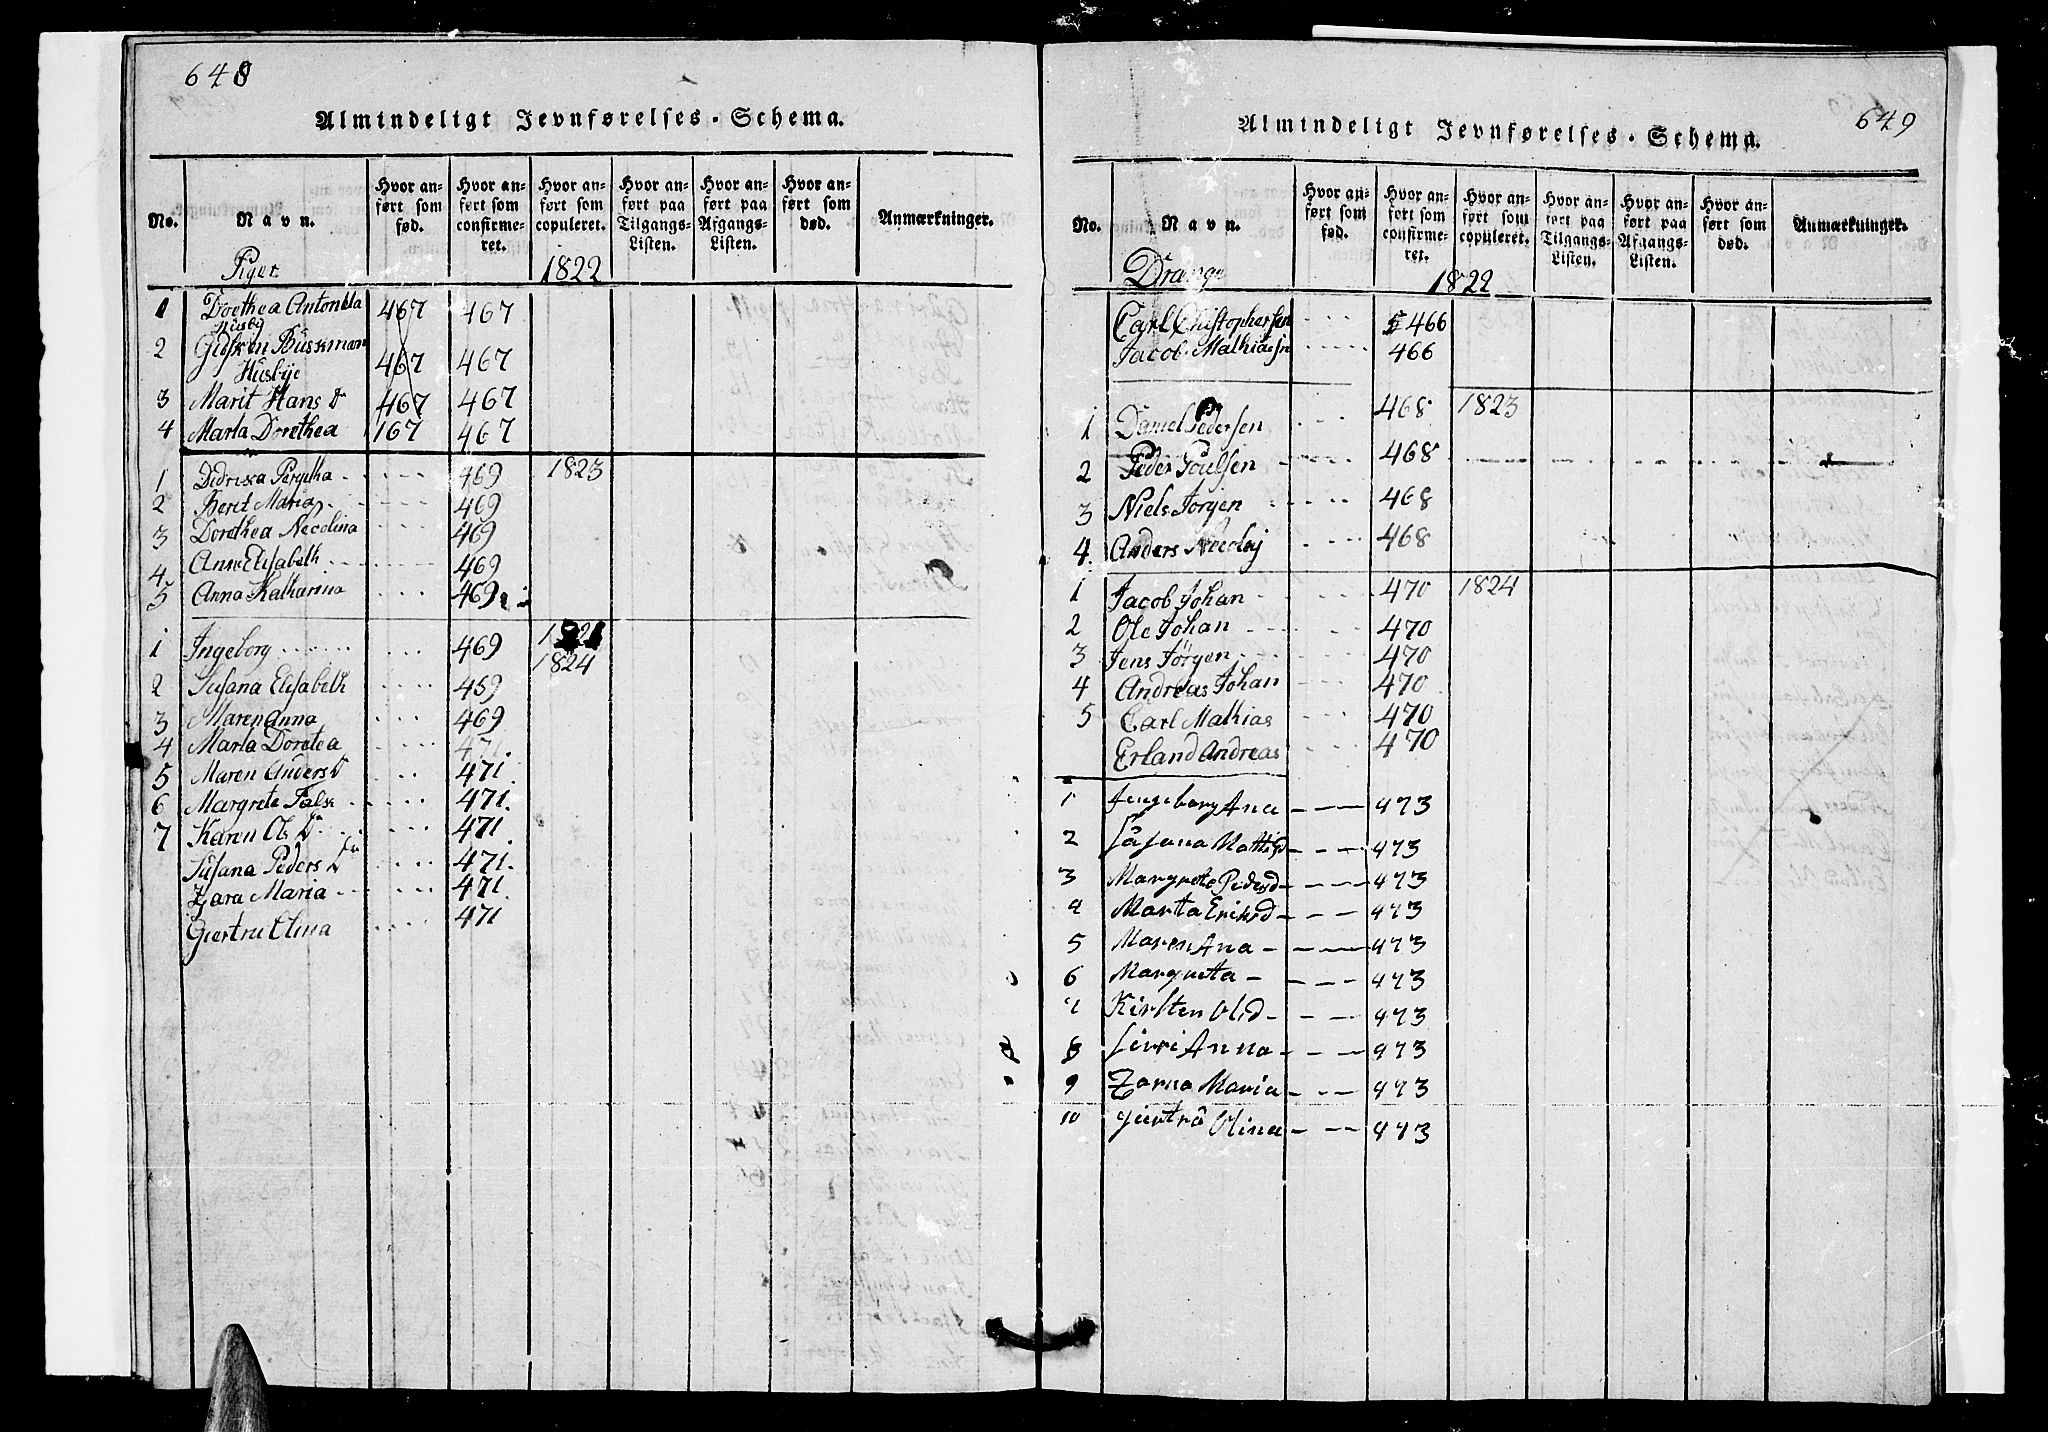 648
Almindeligt Jevnførelses-Schema.
No. Navn. Hvor anført som fød. Hvor anført som confirmeret. Hvor anført som copuleret. Hvor anført paa Tilgangs-Listen. Hvor anført paa Afgangs-Listen. Hvor anført som død. Anmærkninger.
Piger 1822
1 Dorethea Antonetta 467 467
Husby
2 Büssmann
Husbye 467 467
3 Marit Hans D 467 467
4 Marta Dorethea 167 467
1 Didrika 469 1823
2 Berit Maria 469
3 Dorothea Necolina 469
4 Ann Elisabeth 469
5 Anna Katharina 469
1 Ingeborg 469
1824
2 Susana Elisabeth 469
3 Maren Anna 469
4 Marta Doretea 471.
5 Maren Anders D 471.
6 Margrete Falk 471.
7 Karen Ols D 471
Susana Peders D 471.
Zara Maria 471.
Giertru Elina 471
649
Almindeligt Jevnførelses-Schema.
No. Navn. Hvor anført som fød. Hvor anført som confirmeret. Hvor anført som copuleret. Hvor anført paa Tilgangs-Listen. Hvor anført paa Afgangs-Listen. Hvor anført som død. Anmærkninger.
Drænge 1822
Carl Christophersen 466
Jacob Mathiasen 466
1 Daniel Pedersen 468 1823
2 Peder Poulsen 468
3 Niels Jörgen 468
4 Anders Necolaj 468
1 Jacob Johan 470 1824
2 Ole Johan 470
3 Jens Jörgen 470
4 Andreas Johan 470
5 Carl Mathias 470
Erland Andreas 470
1 Jengeborg Ana 473
2 Susana Mattisd 473
3 Margrete Pedersd 473
4 Marta Eriksd 473
5 Maren Ana 473
6 Margreta 473
7 Kirsten Olsd 473
8 Sirri Anna 473
9 Zarna Maria 473
10 Giertru Olina 473